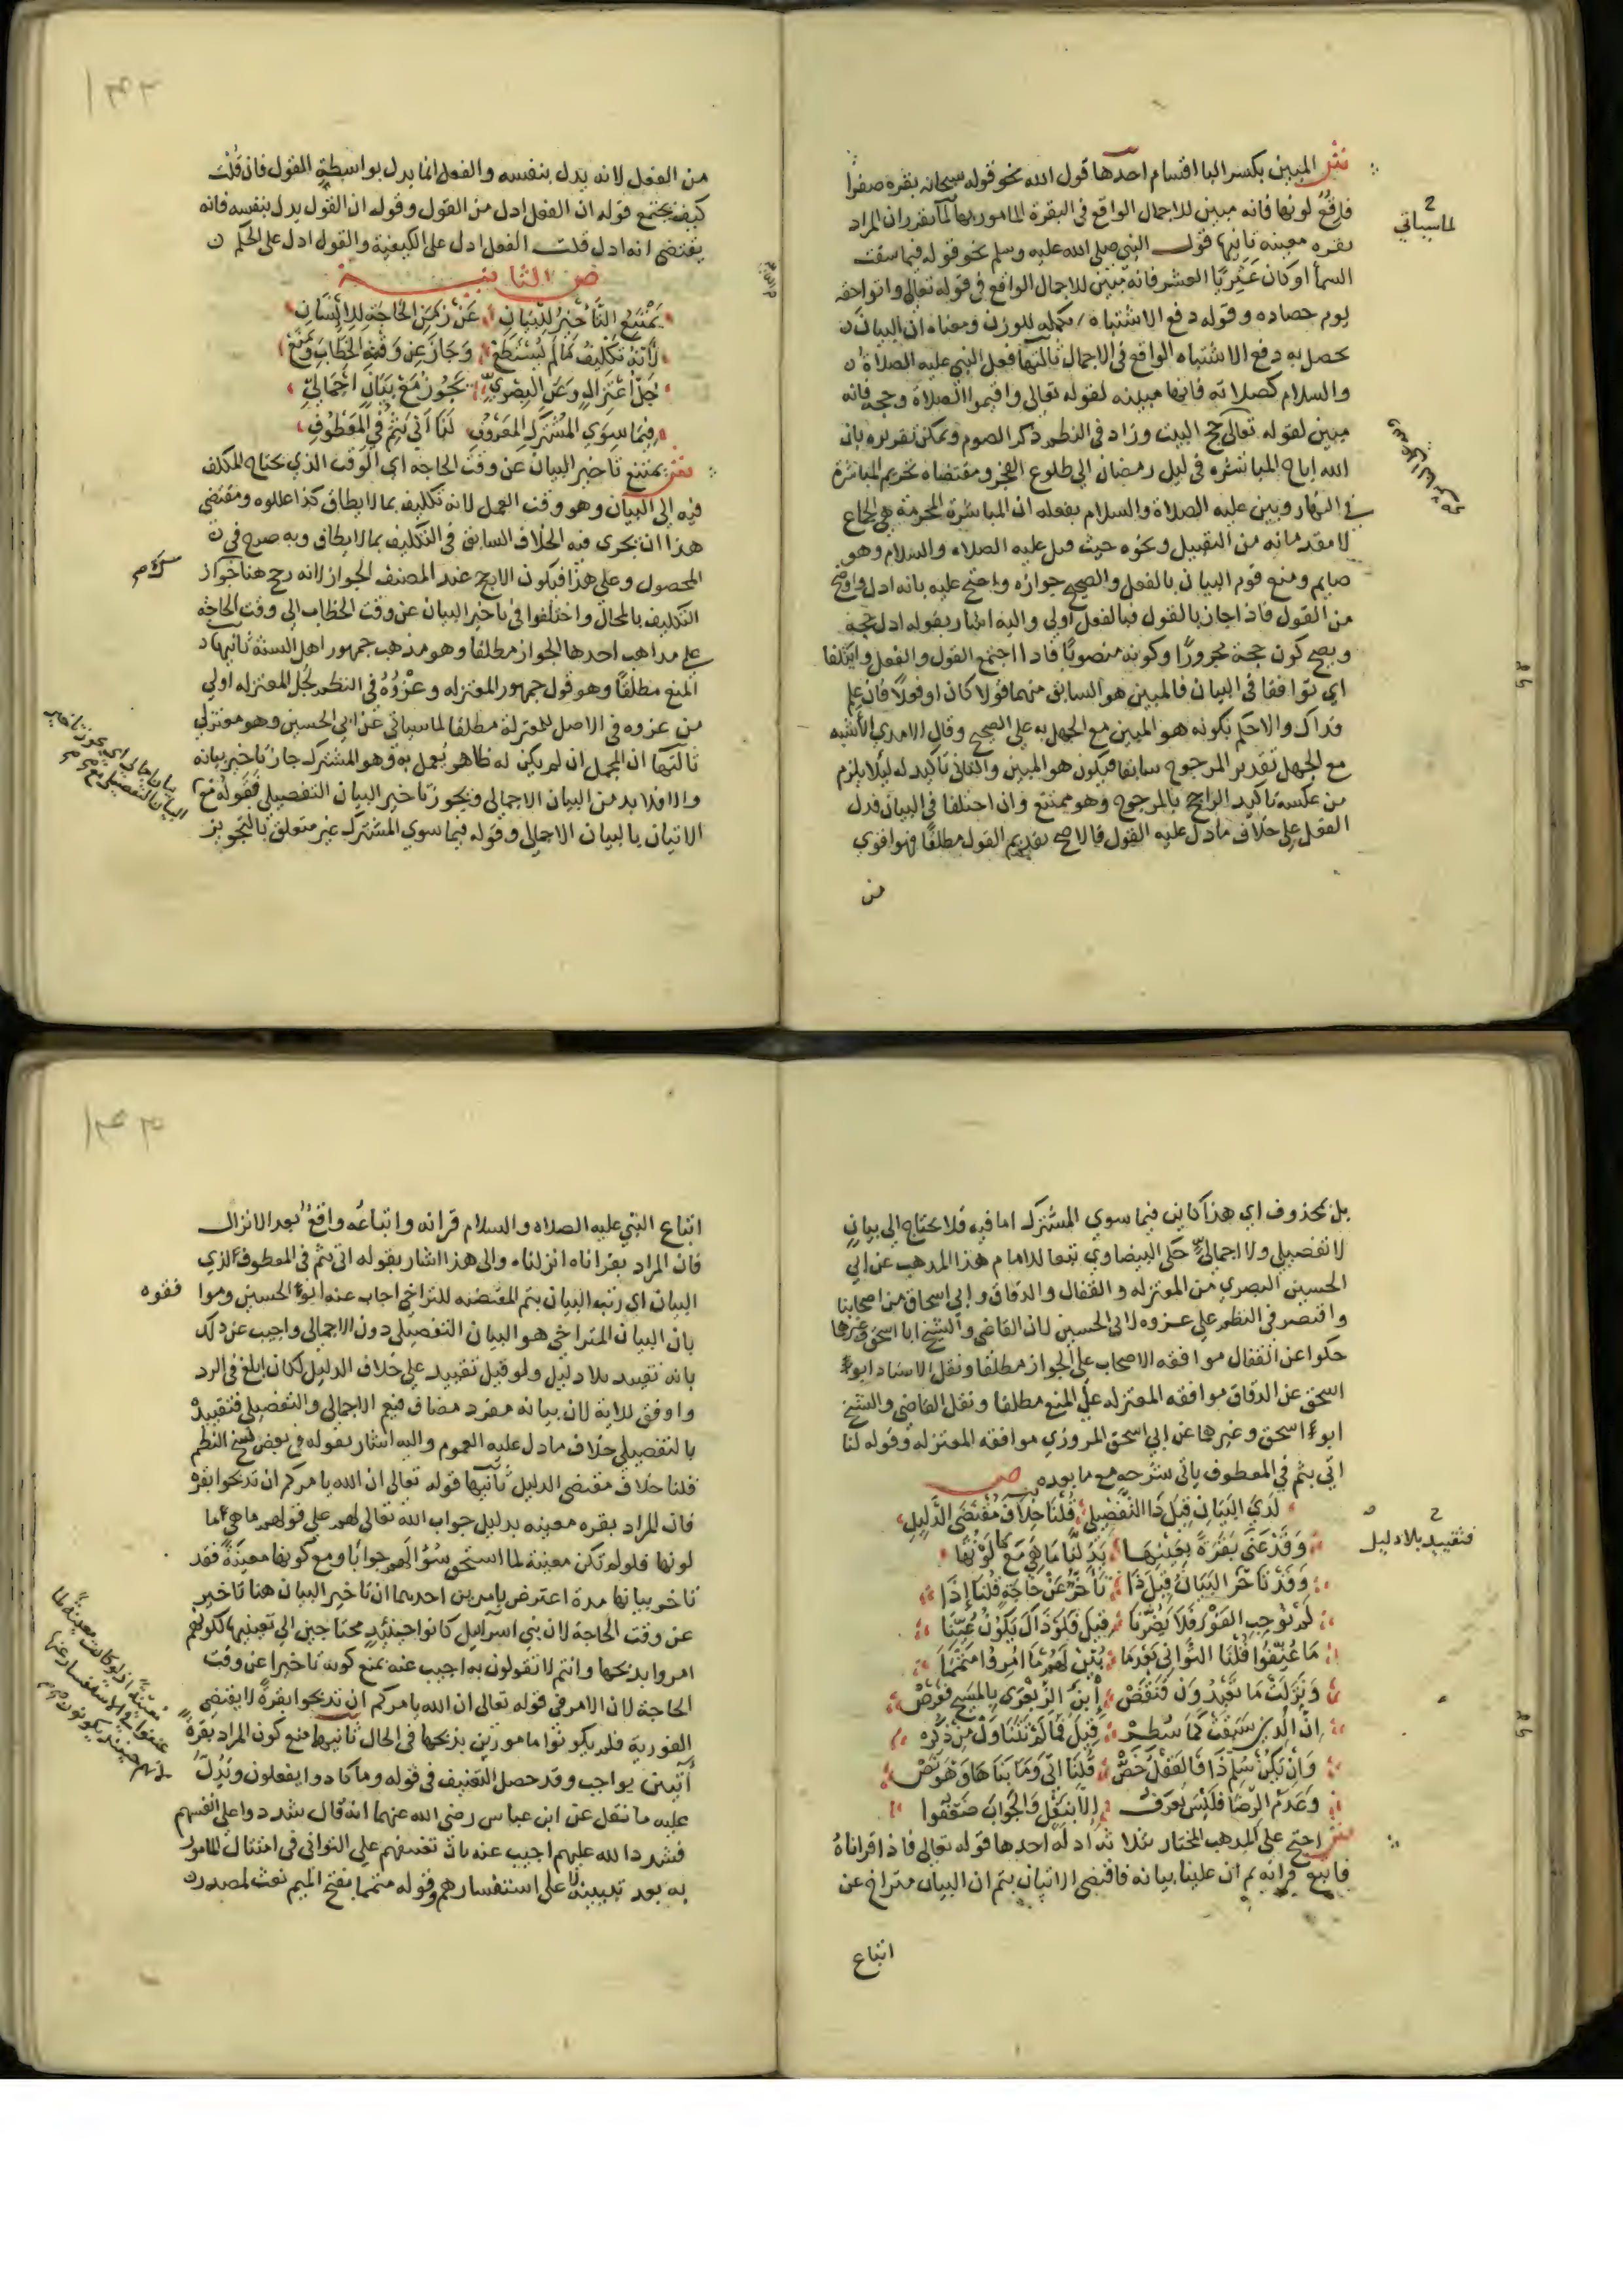 شر المبين بكسر اليا اقسام احدها قول الله نحو قوله سبحانه بقره صفرا
فاقع لونها فانه مبين للاجمال الواقع في البقرة المامور بها لما تقرر ان المراد
بقره معينه ثانيها قول النبي صلى الله عليه وسلم نحو قوله فيما سقت
السماء او كان عثريا العشر فانه مبين للاجمال الواقع في قوله تعالى واتوا حقه
يوم حصاده وقوله دفع الاشتباه تكمله للوزن ومعناه ان البيان
يحصل به دفع الاشتباه الواقع في الاجمال ثالثها فعل النبي عليه الصلاة
والسلام كصلاته فانها مبينه لقوله تعالى واقيموا الصلاة وحجه فانه
مبين لقوله تعالى حج البيت وزاد في النظم ذكر الصوم ويمكن تقريره بان
الله اباح المباشره في ليل رمضان الى طلوع الفجر ومقتضاه تحريم المباشرة
في النهار وبين عليه الصلاة والسلام بفعله ان المباشرة المحرمة هي الجماع
لا مقدماته من التقبيل ونحوه حيث قبل عليه الصلاه والسلام وهو
صايم ومنع قوم البيان بالفعل والصحيح جوازه واحتج عليه بانه ادل واوضح
من القول فاذا جاز بالقول فبالفعل اولى واليه اشار بقوله ادل حجه
ويصح كون حجة مجرورًا وكونه منصوبًا فاذا اجتمع القول والفعل وايتلفا
اي توافقا في البيان فالمبين هو السابق منهما قولا كان او فعلًا فان علم
فذاك والا حكم بكونه هو المبين مع الجهل به على الصحيح وقال الامدي الاشبه
مع الجهل تقدير المرجوح سابقا فيكون هو المبين والثاني تاكيد له ليلا يلزم
من عكسه تاكيد الراجح بالمرجوح وهو ممتنع وان اختلفا في البيان فدل
الفعل على خلاف ما دل عليه القول فالاصح تقديم القول مطلقًا فهو اقوى
من
لما سياتي
من الفعل لانه يدل بنفسه والفعل انما يدل بواسطة القول فان قلت
كيف يجتمع قوله ان الفعل ادل من القول وقوله ان القول يدل بنفسه فانه
يقتضي انه ادل قلت الفعل ادل على الكيفية والقول ادل على الحكم
ص الثانية
يمتنع التأخير للبيان عن زمن الحاجة للإنسان
لأنه تكليف ما لم يستطع وجاز عن وقت الخطاب ومنع
جل اعتزال وعن البصري يجوز مع بيان اجمالي
فيما سوى المشترك المعروف لنا اتى بثم في المعطوف
شر يمتنع تاخير البيان عن وقت الحاجه اي الوقت الذي يحتاج المكلف
فيه الى البيان وهو وقت العمل لانه تكليف بما لا يطاق كذا عللوه ومقتضى
هذا ان يجري فيه الخلاف السابق في التكليف بما لا يطاق وبه صرح في
المحصول وعلى هذا فيكون الارجح عند المصنف الجواز لانه رجح هنا جواز
التكليف بالمحال واختلفوا في تاخير البيان عن وقت الخطاب الى وقت الحاجة
على مذاهب احدها الجواز مطلقا وهو مذهب جمهور اهل السنة ثانيها
المنع مطلقًا وهو قول جمهور المعتزله وعزوه في النظم لجل المعتزله اولى
من عزوه في الاصل للمعتزلة مطلقا لما سياتي عن ابي الحسين وهو معتزلي
ثالثها ان المجمل ان لم يكن له ظاهر يعمل به وهو المشترك جاز تاخير بيانه
والا فلا بد من البيان الاجمالي ويجوز تاخير البيان التفصيلي فقوله مع
الاتيان بالبيان الاجمالي وقوله فيما سوى المشترك غير متعلق بالتجويز
بيان اجمالي اي يجوز تاخير
البيان التفصيلي مع
بل بمحذوف اي هذا كاين فيما سوى المشترك اما فيه فلا يحتاج الى بيان
لا تفصيلي ولا اجمالي حكى البيضاوي تبعا للامام هذا المذهب عن ابي
الحسين البصري من المعتزله والقفال والدقاق وابي اسحاق من اصحابنا
واقتصر في النظم على عزوه لابي الحسين لان القاضي والشيخ ابا اسحق وغيرها
حكوا عن القفال موافقه الاصحاب على الجواز مطلقا ونقل الاستاد ابو
اسحق عن الدقاق موافقه المعتزله على المنع مطلقا ونقل القاضي والشيخ
ابو اسحق وغيرهما عن ابي اسحق المروزي موافقه المعتزله وقوله لنا
اتى بثم في المعطوف ياتي شرحه مع ما بعده ص
لدي البيان قيل ذا التفصيلي قلنا خلاف مقتضى الدليل
وقد عنى بقرة بعينها بدلنا ما هي مع ما لونها
وقد تأخر البيان قيل ذا تأخر عن حاجة قلنا إذا
لم توجب الفور فلا يضرنا قيل فلو ذاك يكون عينا
ما عنفوا قلنا التواني بعدما بين لهم ما امروا متمما
ونزلت ما تعبدون فنقض ابن الزبعرى بالمسيح فعرض
ان الذين سبقت كما سطر قيل فما لم تتناول من ذكره
وان يكن سلم ذا فالعقل خص قلنا الى وما بناها وهو نص
وعدم الرضا فليس يعرف الا بنقل والجواب ضعفوا
شر احتج على المذهب المختار بثلاثة ادله احدها قوله تعالى فاذا قراناه
فاتبع قرانه ثم ان علينا بيانه فاقتضى الاتيان بثم ان البيان متراخ عن
اتباع
فتقييد بلا دليل
اتباع النبي عليه الصلاه والسلام قرانه واتباعه واقع بعد الانزال
فان المراد بقراناه انزلناه والى هذا اشار بقوله اتى بثم في المعطوف الذي
البيان اي رتب البيان بثم المقتضيه للتراخي اجاب عنه ابو الحسين وموا فقوه
بان البيان المتراخي هو البيان التفصيلي دون الاجمالي واجيب عن ذلك
بانه تقييد بلا دليل ولو قيل تقييد على خلاف الدليل لكان ابلغ في الرد
واوفق للاية لان بيانه مفرد مضاف فيعم الاجمالي والتفصيلي فتقييده
بالتفصيلي خلاف ما دل عليه العموم واليه اشار بقوله في بعض نسخ النظم
قلنا خلاف مقتضى الدليل ثانيها قوله تعالى ان الله يامركم ان تذبحوا بقرة
فان المراد بقره معينه بدليل جواب الله تعالى لهم على قولهم ما هي وما
لونها فلو لم تكن معينة لما استحق سؤالهم جوابًا ومع كونها معينة فقد
تاخر بيانها مدة اعترض بامرين احدهما ان تاخير البيان هنا تاخير
عن وقت الحاجة لان بني اسرائيل كانوا حينئذ محتاجين الى تعيينها لكونهم
امروا بذبحها وانتم لا تقولون به اجيب عنه بمنع كونه تاخيرا عن وقت
الحاجة لان الامر في قوله تعالى ان الله يامركم ان تذبحوا بقرة لا يقتضي
الفورية فلم يكونوا مامورين بذبحها في الحال ثانيهما منع كون المراد بقرة
يواجب وقد حصل التعنيف في قوله وما كادوا يفعلون ويدل
عليه ما نقل عن ابن عباس رضي الله عنهما انه قال شددوا على انفسهم
فشدد الله عليهم اجيب عنه بان تعنيفهم على التواني في امتثال المامور
به بعد تبيينه لا على استفسارهم وقوله متمما بفتح الميم نعت لمصدر
معينة اذ لو كانت معينة لما
عنفوا في الاستفسار عنها
لانهم حينئذ يكونون